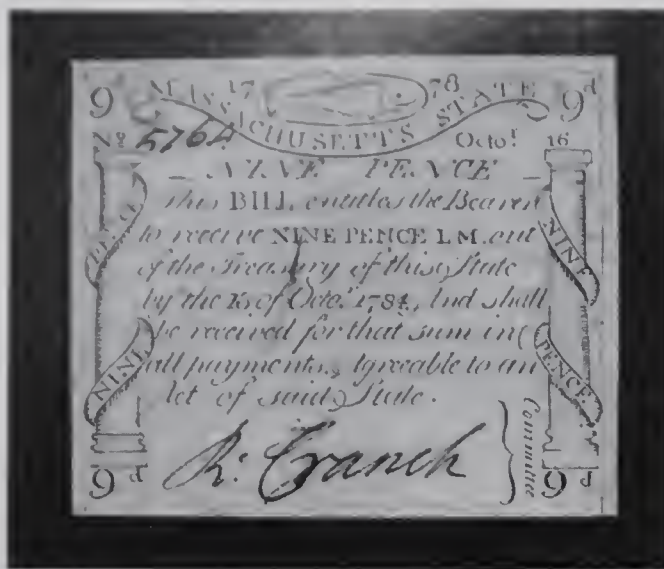 9d 17 78 9d
MASSACHUSETTS STATE
No 5764 Octor. 16
NINE PENCE
This BILL entitles the Bearer
to receive NINE PENCE L M. out
of the Treasury of this State
by the 16 of Octr. 1784, And shall
be received for that sum in
all payments, Agreeable to an
Act of said State.
PENCE
NINE
NINE
PENCE
R: Cranch
Committee
9d 9d